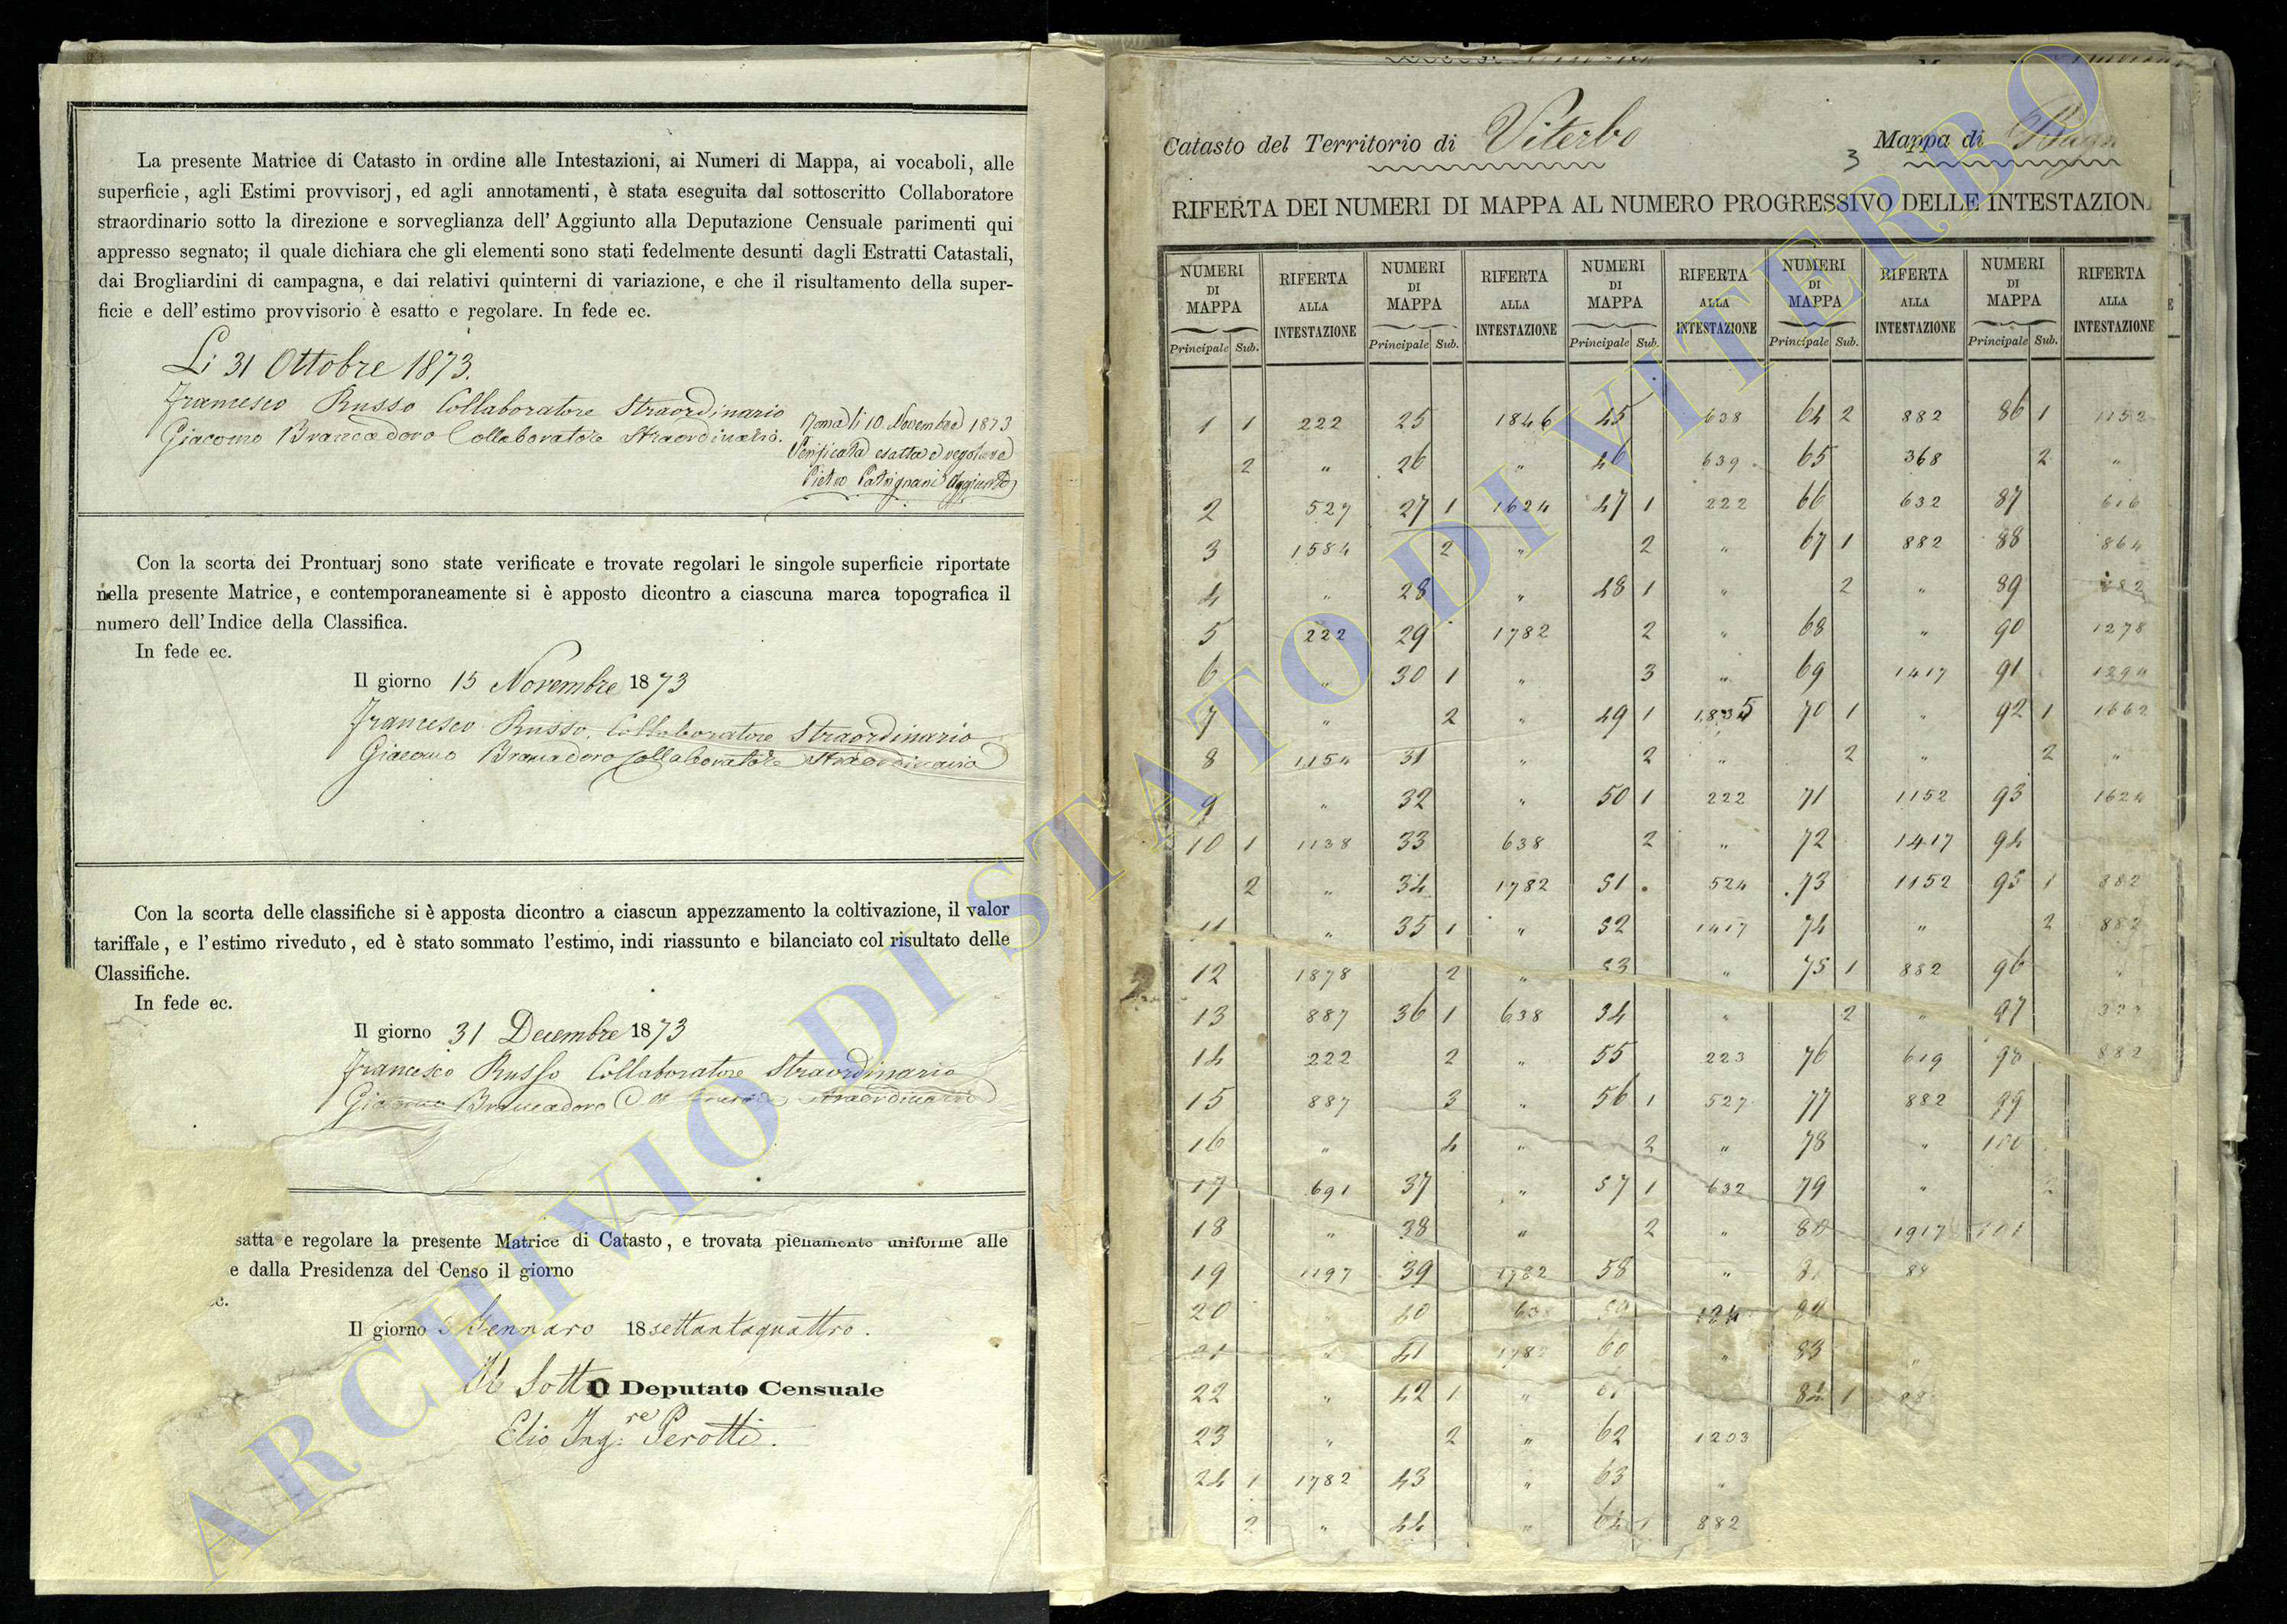 La presente Matrice di Catasto in ordine alle Intestazioni, ai Numeri di Mappa, ai vocaboli, alle
superficie, agli Estimi provvisorj, ed agli annotamenti, è stata eseguita dal sottoscritto Collaboratore
straordinario sotto la direzione e sorveglianza dell' Aggiunto alla Deputazione Censuale parimenti qui
appresso segnato; il quale dichiara che gli elementi sono stati fedelmente desunti dagli Estratti Catastali,
dai Brogliardini di campagna, e dai relativi quinterni di variazione, e che il risultamento della super-
ficie e dell' estimo provvisorio è esatto e regolare. In fede ec.
Li 31 Ottobre 1873.
Francesco Russo Collaboratore Straordinario
Giacomo Brancadoro Collaboratore Straordinario.
Roma li 10 Novembre 1873
Verificata esatta e regolare
Pietro Aggiunto
Con la scorta dei Prontuarj sono state verificate e trovate regolari le singole superficie riportate
nella presente Matrice, e contemporaneamente si è apposto dicontro a ciascuna marca topografica il
numero dell' Indice della Classifica.
In fede ec.
Il giorno 15 Novembre 1873
Francesco Russo, Collaboratore Straordinario
Giacomo Brancadoro Collaboratore Straordinario
Con la scorta delle classifiche si è apposta dicontro a ciascun appezzamento la coltivazione, il valor
tariffale, e l'estimo riveduto, ed è stato sommato l'estimo, indi riassunto e bilanciato col risultato delle
Classifiche.
In fede ec.
Il giorno 31 Decembre 1873
Francesco Russo Collaboratore Straordinario
Giacomo Brancadoro Straordinario
satta e regolare la presente Matrice di Catasto, e trovata pienamente uniforme alle
e dalla Presidenza del Censo il giorno
ec.
Il giorno Gennaro 18settantaquattro.
Il Sotto Deputato Censuale
Elio Ing.re Perotti.
Catasto del Territorio di Viterbo
3 Mappa di Bagn
RIFERTA DEI NUMERI DI MAPPA AL NUMERO PROGRESSIVO DELLE INTESTAZION
NUMERI DI MAPPA RIFERTA ALLA INTESTAZIONE NUMERI DI MAPPA RIFERTA ALLA INTESTAZIONE NUMERI DI MAPPA RIFERTA ALLA INTESTAZIONE NUMERI DI MAPPA RIFERTA ALLA INTESTAZIONE NUMERI DI MAPPA RIFERTA ALLA INTESTAZIONE
Principale Sub. Principale Sub. Principale Sub. Principale Sub. Principale Sub.
1 1 222 25 1846 45 638 64 2 882 86 1 1152
2 " 26 " 46 639 65 368 2 "
2 527 27 1 1624 47 1 222 66 632 87 616
3 1584 2 " 2 " 67 1 882 88 864
4 " 28 " 48 1 " 2 " 89 882
5 222 29 1782 2 " 68 " 90 1278
6 " 30 1 " 3 " 69 1417 91 1394
7 " 2 " 49 1 1835 70 1 " 92 1 1662
8 1154 31 " 2 " 2 " 2 "
9 " 32 " 50 1 222 71 1152 93 1624
10 1 1138 33 638 2 " 72 1417 94
2 " 34 1782 51 524 73 1152 95 1 882
11 " 35 1 " 52 1417 74 " 2 882
12 1878 2 " 53 " 75 1 882 96 "
13 887 36 1 638 54 " 2 " 97
14 222 2 " 55 223 76 619 98 882
15 887 3 " 56 1 527 77 882 99
16 " 4 " 2 " 78 " 100
17 691 37 " 57 1 632 79 " 2
18 " 38 " 2 " 80 1917 101
19 1197 39 1782 58 " 81 88
20 40 63 59 124 82
21 " 41 178 60 " 83 "
22 " 42 1 " 61 84 1 88
23 " 2 " 62 1203
24 1 1782 43 " 63 "
2 " 44 " 64 1 882
ARCHIVIO DI STATO DI VITERBO